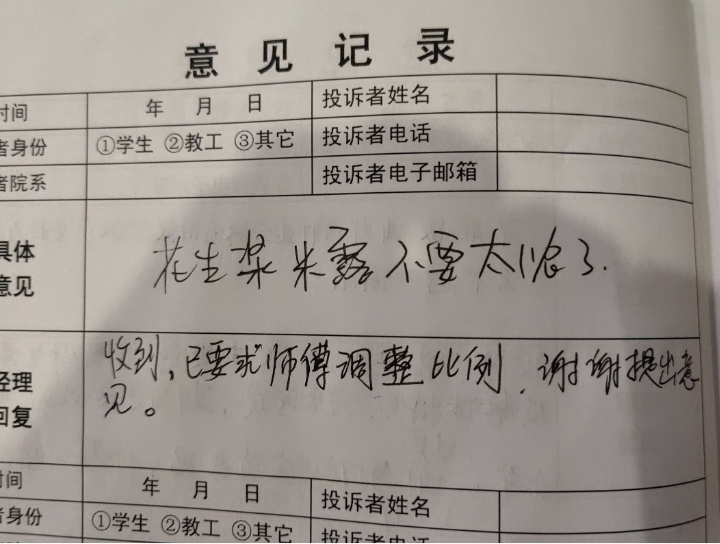 意见记录
时间 年 月 日 投诉者姓名
者身份 ①学生 ②教工 ③其它 投诉者电话
者院系 投诉者电子邮箱
具体
意见
花生浆米露不要太浓了.
经理
回复
收到,已要求师傅调整比例,谢谢提出意
见。
时间 年 月 日 投诉者姓名
者身份 ①学生 ②教工 ③其它 投诉者电话